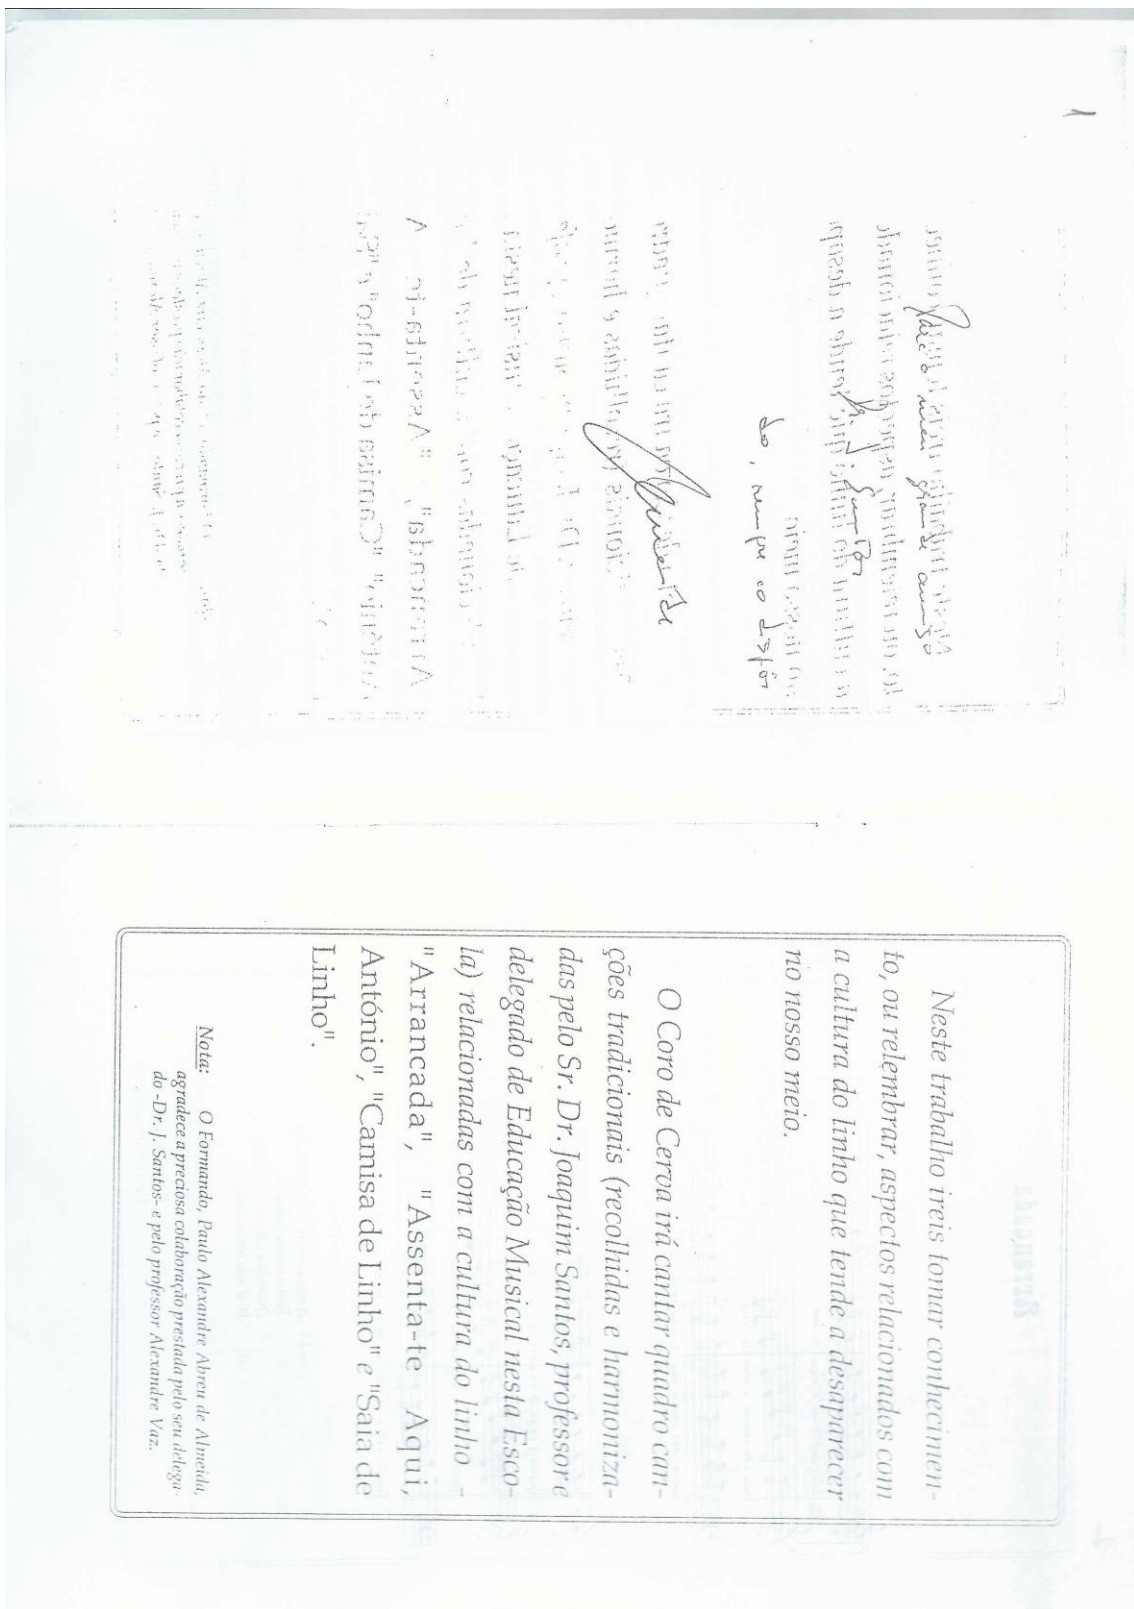 Para o meu grande amigo
Dr. J. Santos
do, sempre ao dispôr
Neste trabalho ireis tomar conhecimen-
to, ou relembrar, aspectos relacionados com
a cultura do linho que tende a desaparecer
no nosso meio.
O Coro de Cerva irá cantar quadro can-
ções tradicionais (recolhidas e harmoniza-
das pelo Sr. Dr. Joaquim Santos, professor e
delegado de Educação Musical nesta Esco-
la) relacionadas com a cultura do linho -
"Arrancada", "Assenta-te Aqui,
António", "Camisa de Linho" e "Saia de
Linho".
Nota: O Formando, Paulo Alexandre Abreu de Almeida,
agradece a preciosa colaboração prestada pelo seu delega-
do -Dr. J. Santos- e pelo professor Alexandre Vaz.